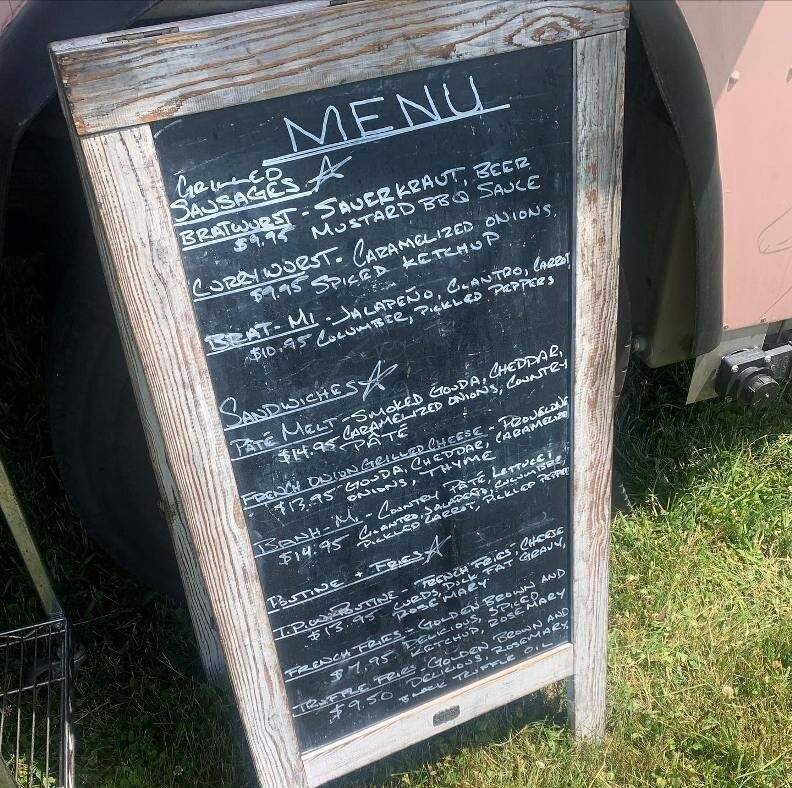 MENU
GRILLED
SAUSAGES
BRATWURST - SAUERKRAUT, BEER
$9.95 MUSTARD BBQ SAUCE
CURRYWURST - CARAMELIZED ONIONS,
$9.95 SPICED KETCHUP
BRAT-MI - JALAPEÑO, CILANTRO, CARROT
$10.95 CUCUMBER, PICKLED PEPPERS
SANDWICHES
PÂTE MELT - SMOKED GOUDA, CHEDDAR,
$14.95 CARAMELIZED ONIONS, COUNTRY
PÂTE
FRENCH ONION GRILLED CHEESE - PROVELONE
$13.95 GOUDA, CHEDDAR, CARAMELIZED
ONIONS, THYME
BANH-MI - COUNTRY PÂTE, LETTUCE,
$14.95 CILANTRO, JALAPEÑO, CUCUMBER,
PICKLED CARROT, PICKLED PEPPER
POUTINE + FRIES
POUTINE - FRENCH FRIES, CHEESE
$13.95 CURDS, DUCK FAT GRAVY,
ROSEMARY
FRENCH FRIES - GOLDEN BROWN AND
$7.95 DELICIOUS, SPICED
KETCHUP, ROSEMARY
TRUFFLE FRIES - GOLDEN BROWN AND
$9.50 DELICIOUS, ROSEMARY,
BLACK TRUFFLE OIL